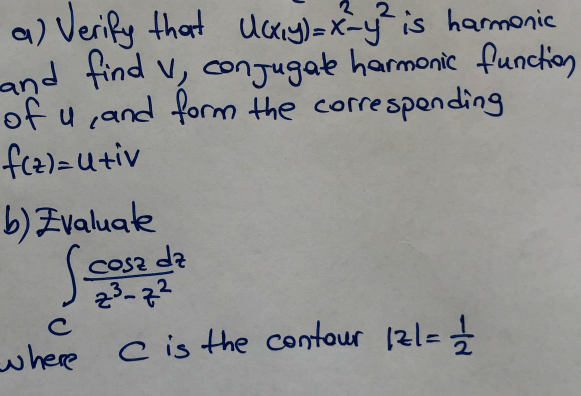 a) Verify that u(x,y)=x²-y² is harmonic
and find v, conjugate harmonic function
of u, and form the corresponding
f(z)=u+iv
b) Evaluate
∫_C cosz dz / z³-z²
where C is the contour |z|=1/2